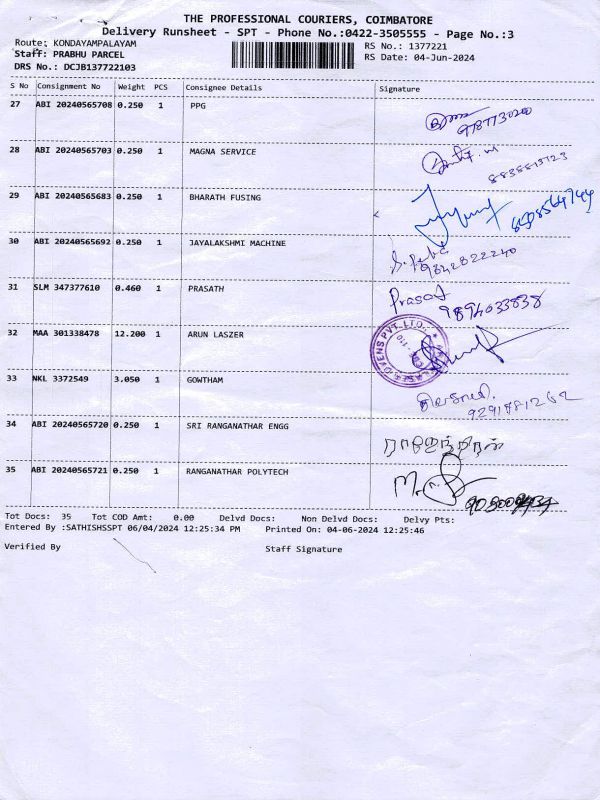 THE PROFESSIONAL COURIERS, COIMBATORE
Delivery Runsheet - SPT - Phone No.:0422-3505555 - Page No.:3
Route: KONDAYAMPALAYAM RS No.: 1377221
Staff: PRABHU PARCEL RS Date: 04-Jun-2024
DRS No.: DCJB137722103
S No Consignment No Weight PCS Consignee Details Signature
27 ABI 20240565708 0.250 1 PPG
28 ABI 20240565703 0.250 1 MAGNA SERVICE
29 ABI 20240565683 0.250 1 BHARATH FUSING
30 ABI 20240565692 0.250 1 JAYALAKSHMI MACHINE
9842822240
31 SLM 347377610 0.460 1 PRASATH Prasat
9894033838
32 MAA 301338478 12.200 1 ARUN LASZER
33 NKL 3372549 3.050 1 GOWTHAM
34 ABI 20240565720 0.250 1 SRI RANGANATHAR ENGG
35 ABI 20240565721 0.250 1 RANGANATHAR POLYTECH
Tot Docs: 35 Tot COD Amt: 0.00 Delvd Docs: Non Delvd Docs: Delvy Pts:
Entered By :SATHISHSSPT 06/04/2024 12:25:34 PM Printed On: 04-06-2024 12:25:46
Verified By Staff Signature